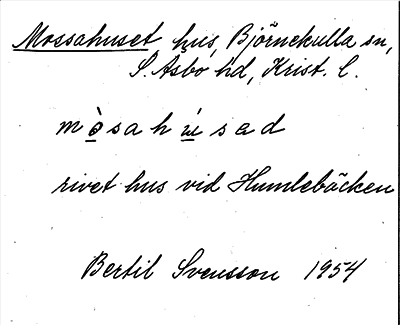 Mossahuset hus, Björnekulla sn,
S. Åsbo hd, Krist. l.
mòsahúsad
rivet hus vid Humlebäcken
Bertil Svensson 1954